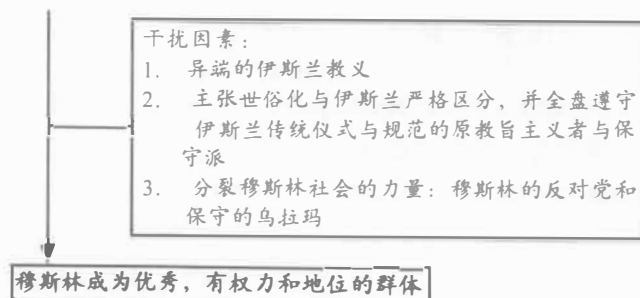 干扰因素：
1. 异端的伊斯兰教义
2. 主张世俗化与伊斯兰严格区分，并全盘遵守
伊斯兰传统仪式与规范的原教旨主义者与保
守派
3. 分裂穆斯林社会的力量：穆斯林的反对党和
保守的乌拉玛
穆斯林成为优秀，有权力和地位的群体